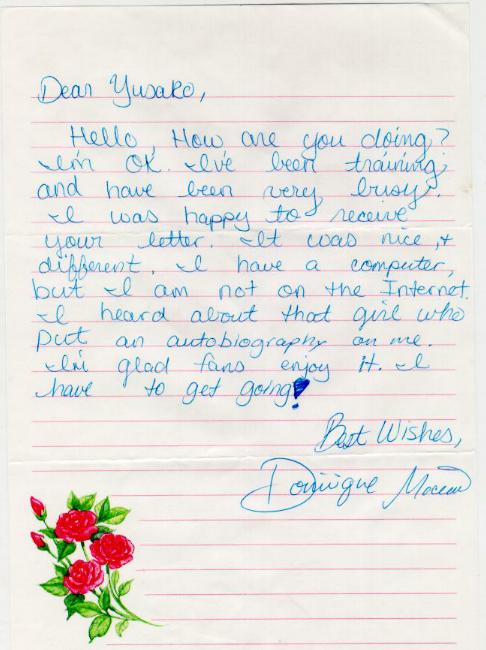 Dear Yusako,
Hello, How are you doing?
I'm OK. I've been training,
and have been very busy.
I was happy to receive
your letter. It was nice, &
different. I have a computer,
but I am not on the Internet.
I heard about that girl who
put an autobiography on me.
I'm glad fans enjoy it. I
have to get going!
Best Wishes,
Dominique Moceanu